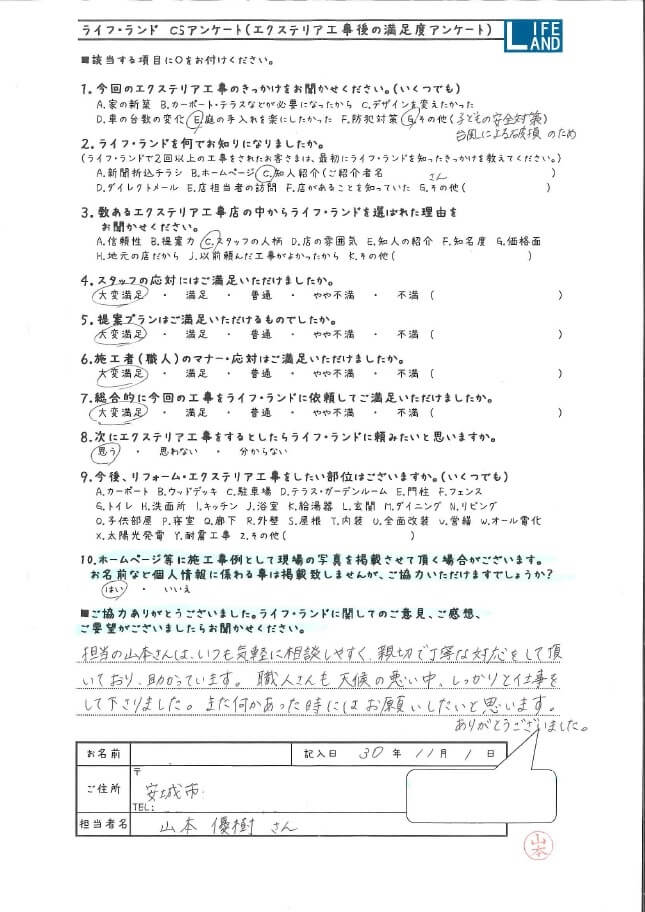 ライフ・ランド CSアンケート(エクステリア工事後の満足度アンケート)
LIFE LAND
■該当する項目に○をお付けください。
1.今回のエクステリア工事のきっかけをお聞かせください。(いくつでも)
A.家の新築 B.カーポート・テラスなどが必要になったから C.デザインを変えたかった
D.車の台数の変化 E.庭の手入れを楽にしたかった F.防犯対策 G.その他(子どもの安全対策)
台風による破損のため
2.ライフ・ランドを何でお知りになりましたか。
(ライフ・ランドで2回以上の工事をされたお客さまは、最初にライフ・ランドを知ったきっかけを教えてください。)
A.新聞折込チラシ B.ホームページ C.知人紹介(ご紹介者名 さん )
D.ダイレクトメール E.店担当者の訪問 F.店があることを知っていた G.その他( )
3.数あるエクステリア工事店の中からライフ・ランドを選ばれた理由を
お聞かせください。
A.信頼性 B.提案力 C.スタッフの人柄 D.店の雰囲気 E.知人の紹介 F.知名度 G.価格面
H.地元の店だから J.以前頼んだ工事がよかったから K.その他( )
4.スタッフの応対にはご満足いただけましたか。
大変満足 ・ 満足 ・ 普通 ・ やや不満 ・ 不満 ( )
5.提案プランはご満足いただけるものでしたか。
大変満足 ・ 満足 ・ 普通 ・ やや不満 ・ 不満 ( )
6.施工者(職人)のマナー・応対はご満足いただけましたか。
大変満足 ・ 満足 ・ 普通 ・ やや不満 ・ 不満 ( )
7.総合的に今回の工事をライフ・ランドに依頼してご満足いただけましたか。
大変満足 ・ 満足 ・ 普通 ・ やや不満 ・ 不満 ( )
8.次にエクステリア工事をするとしたらライフ・ランドに頼みたいと思いますか。
思う ・ 思わない ・ 分からない
9.今後、リフォーム・エクステリア工事をしたい部位はございますか。(いくつでも)
A.カーポート B.ウッドデッキ C.駐車場 D.テラス・ガーデンルーム E.門柱 F.フェンス
G.トイレ H.洗面所 I.キッチン J.浴室 K.給湯器 L.玄関 M.ダイニング N.リビング
O.子供部屋 P.寝室 Q.廊下 R.外壁 S.屋根 T.内装 U.全面改装 V.営繕 W.オール電化
X.太陽光発電 Y.耐震工事 Z.その他( )
10.ホームページ等に施工事例として現場の写真を掲載させて頂く場合がございます。
お名前など個人情報に係わる事は掲載致しませんが、ご協力いただけますでしょうか?
はい ・ いいえ
■ご協力ありがとうございました。ライフ・ランドに関してのご意見、ご感想、
ご要望がございましたらお聞かせください。
担当の山本さんは、いつも気軽に相談しやすく、親切で丁寧な対応をして頂
いており、助かっています。職人さんも天候の悪い中、しっかりと仕事を
して下さりました。また何かあった時にはお願いしたいと思います。
ありがとうございました。
お名前 記入日 30年 11月 1日
ご住所 〒 安城市
TEL:
担当者名 山本 優樹 さん
山本